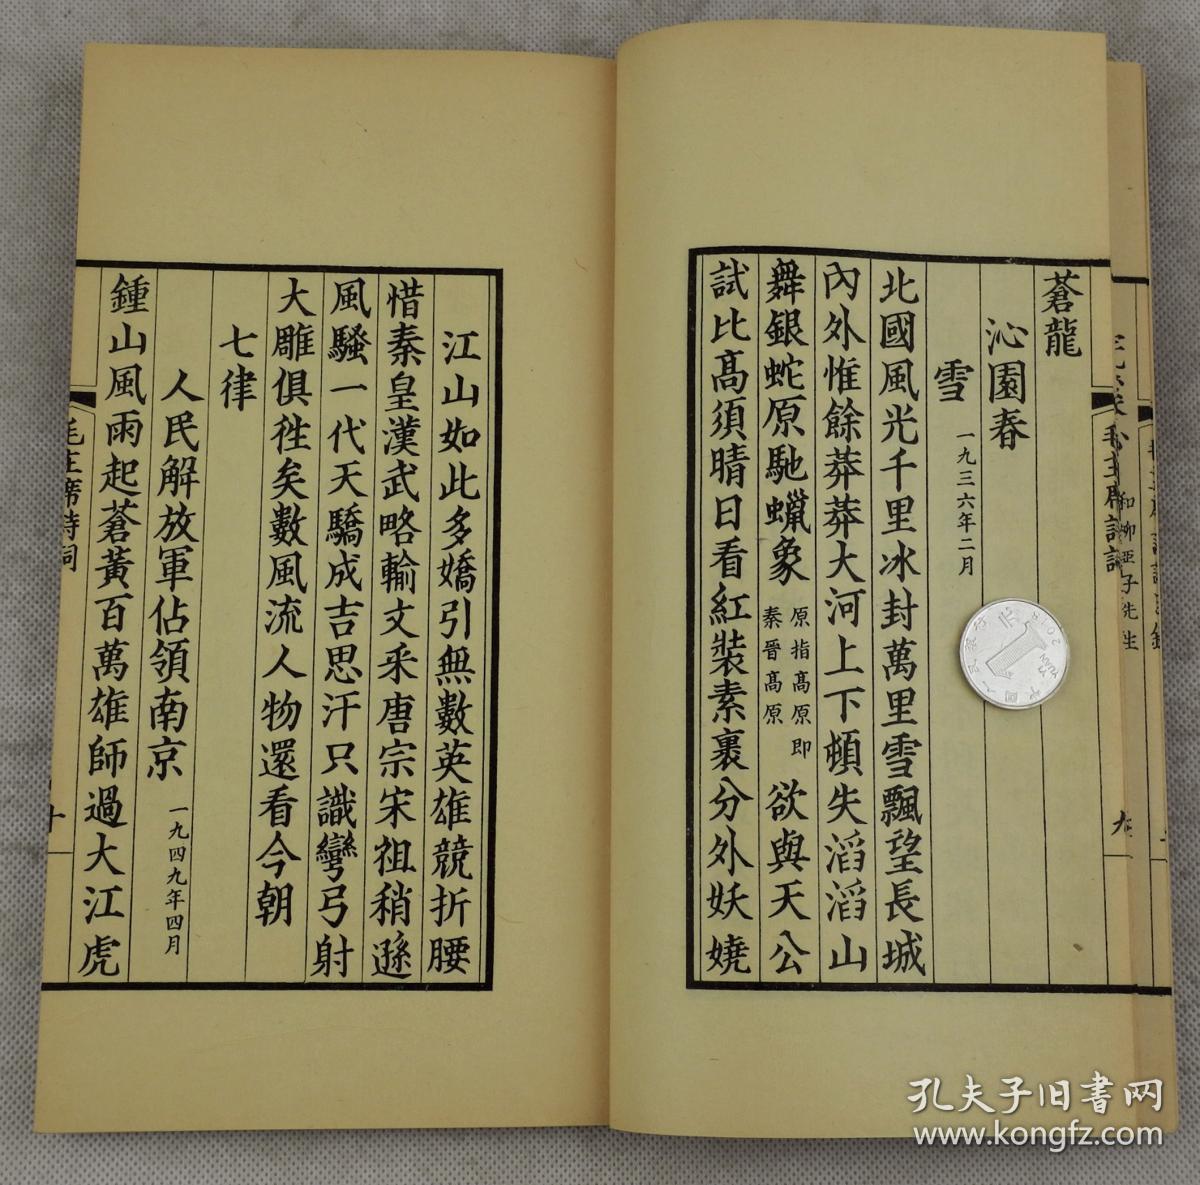 蒼龍
沁園春
雪 一九三六年二月
北國風光千里冰封萬里雪飄望長城
內外惟餘莽莽大河上下頓失滔滔山
舞銀蛇原馳蠟象 原指高原即
秦晉高原 欲與天公
試比高須晴日看紅裝素裹分外妖嬈
江山如此多嬌引無數英雄競折腰
惜秦皇漢武略輸文采唐宗宋祖稍遜
風騷一代天驕成吉思汗只識彎弓射
大雕俱往矣數風流人物還看今朝
七律
人民解放軍佔領南京 一九四九年四月
鍾山風雨起蒼黃百萬雄師過大江虎
毛主席詩詞
和柳亞子先生
孔夫子旧书网
www.kongfz.com